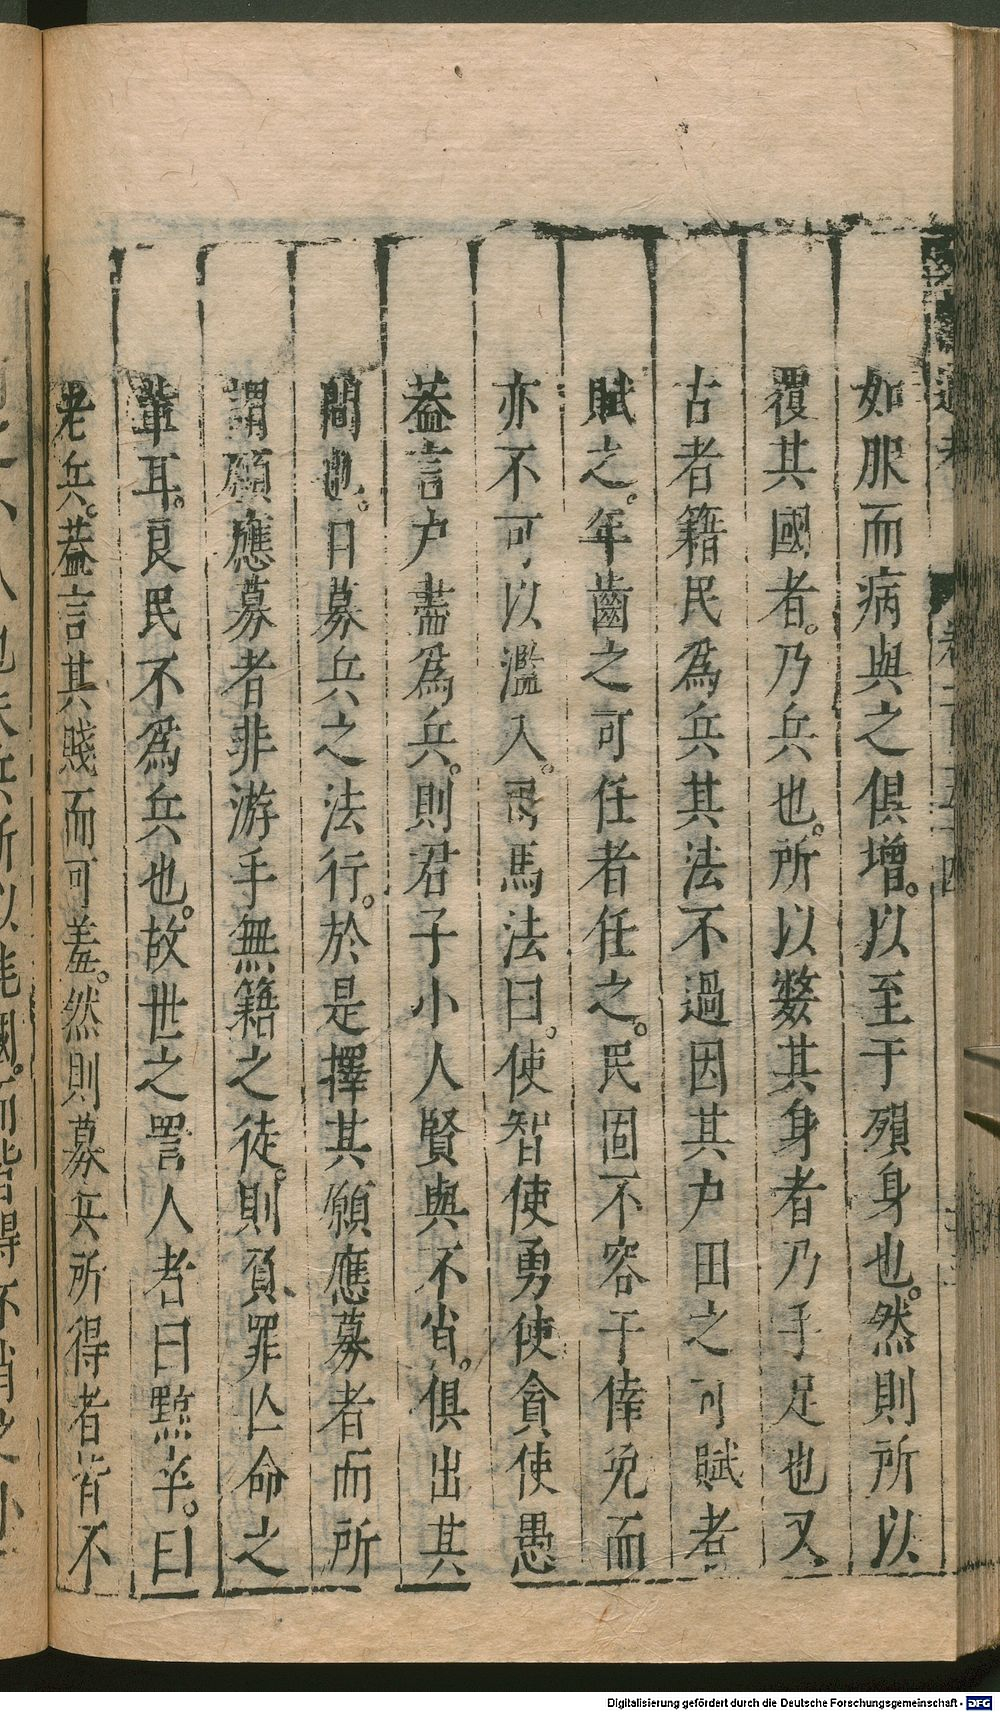 如服而病與之俱增。以至于殞身也。然則所以
覆其國者。乃兵也。所以斃其身者乃手足也又
古者籍民爲兵其法不過因其户田之可賦者
賦之。年齒之可任者任之。民固不容于倖免而
亦不可以濫入。司馬法曰。使智使勇使貪使愚
葢言户盡爲兵。則君子小人賢與不肖。俱出其
間也。曰募兵之法行。於是擇其願應募者而所
謂願應募者非游手無籍之徒。則負罪亾命之
輩耳。良民不爲兵也。故世之詈人者曰黥卒。曰
老兵。葢言其賤而可羞。然則募兵所得者皆不
Digitalisierung gefördert durch die Deutsche Forschungsgemeinschaft - DFG